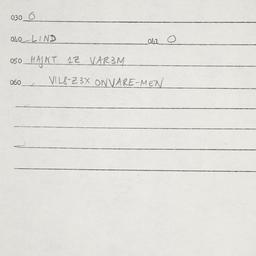 030 O
040 LIND 042 O
050 HAJNT 1Z VAR3M
060 VIL8-Z3X ONVARE-MEN